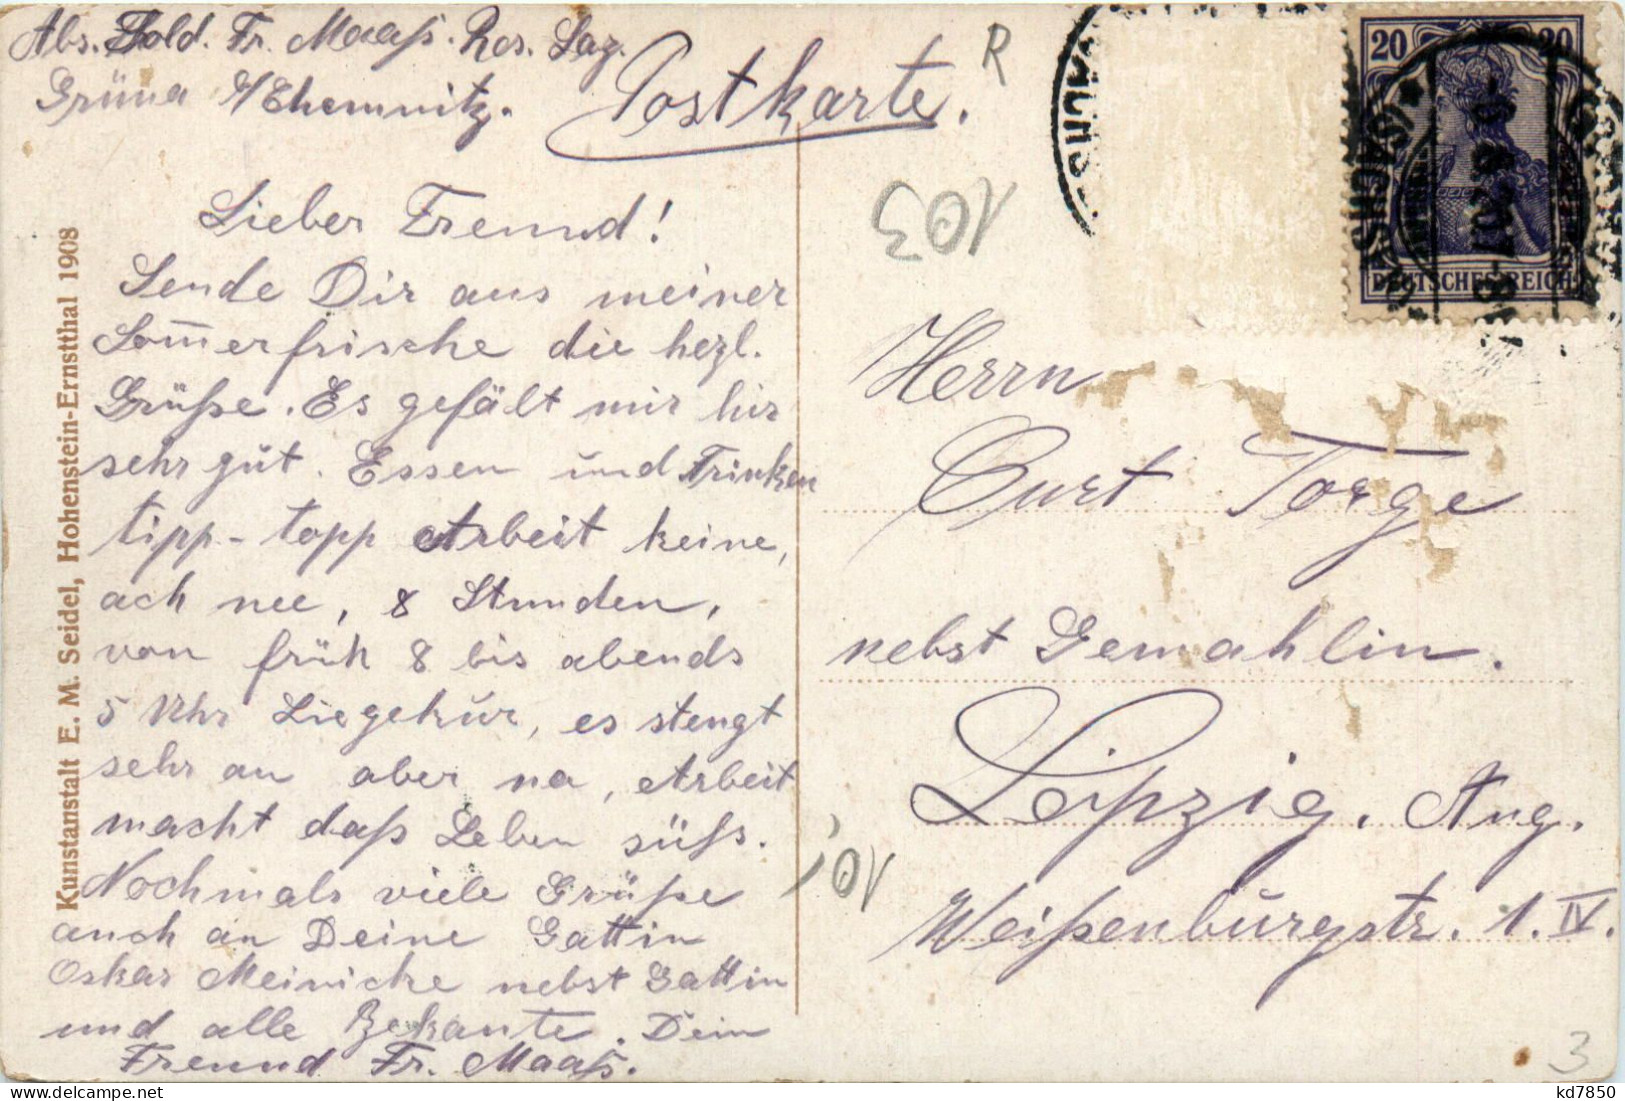 Abs. Sold. Fr. Maaß. Res. Laz.
Grüna i/Chemnitz.
Postkarte.
R
103
Lieber Freund!
Sende Dir aus meiner
Som̅erfrische die hezl.
Grüße. Es gefält mir hir
sehr gut. Essen und Trinken
tipp-topp Arbeit keine,
ach nee, 8 Stunden,
von früh 8 bis abends
5 Uhr Liegekur, es stengt
sehr an aber na, Arbeit
macht daß Leben süß.
Nochmals viele Grüße
auch an Deine Gattin
Oskar Meinicke nebst Gattin
und alle Bekannte. Dein
Freund Fr. Maaß.
Kunstanstalt E. M. Seidel, Hohenstein-Ernstthal 1908
20 20
DEUTSCHES REICH
Herrn
Curt Torge
nebst Gemahlin.
Leipzig. Ang.
Weißenburgstr. 1. IV.
3
kd7850